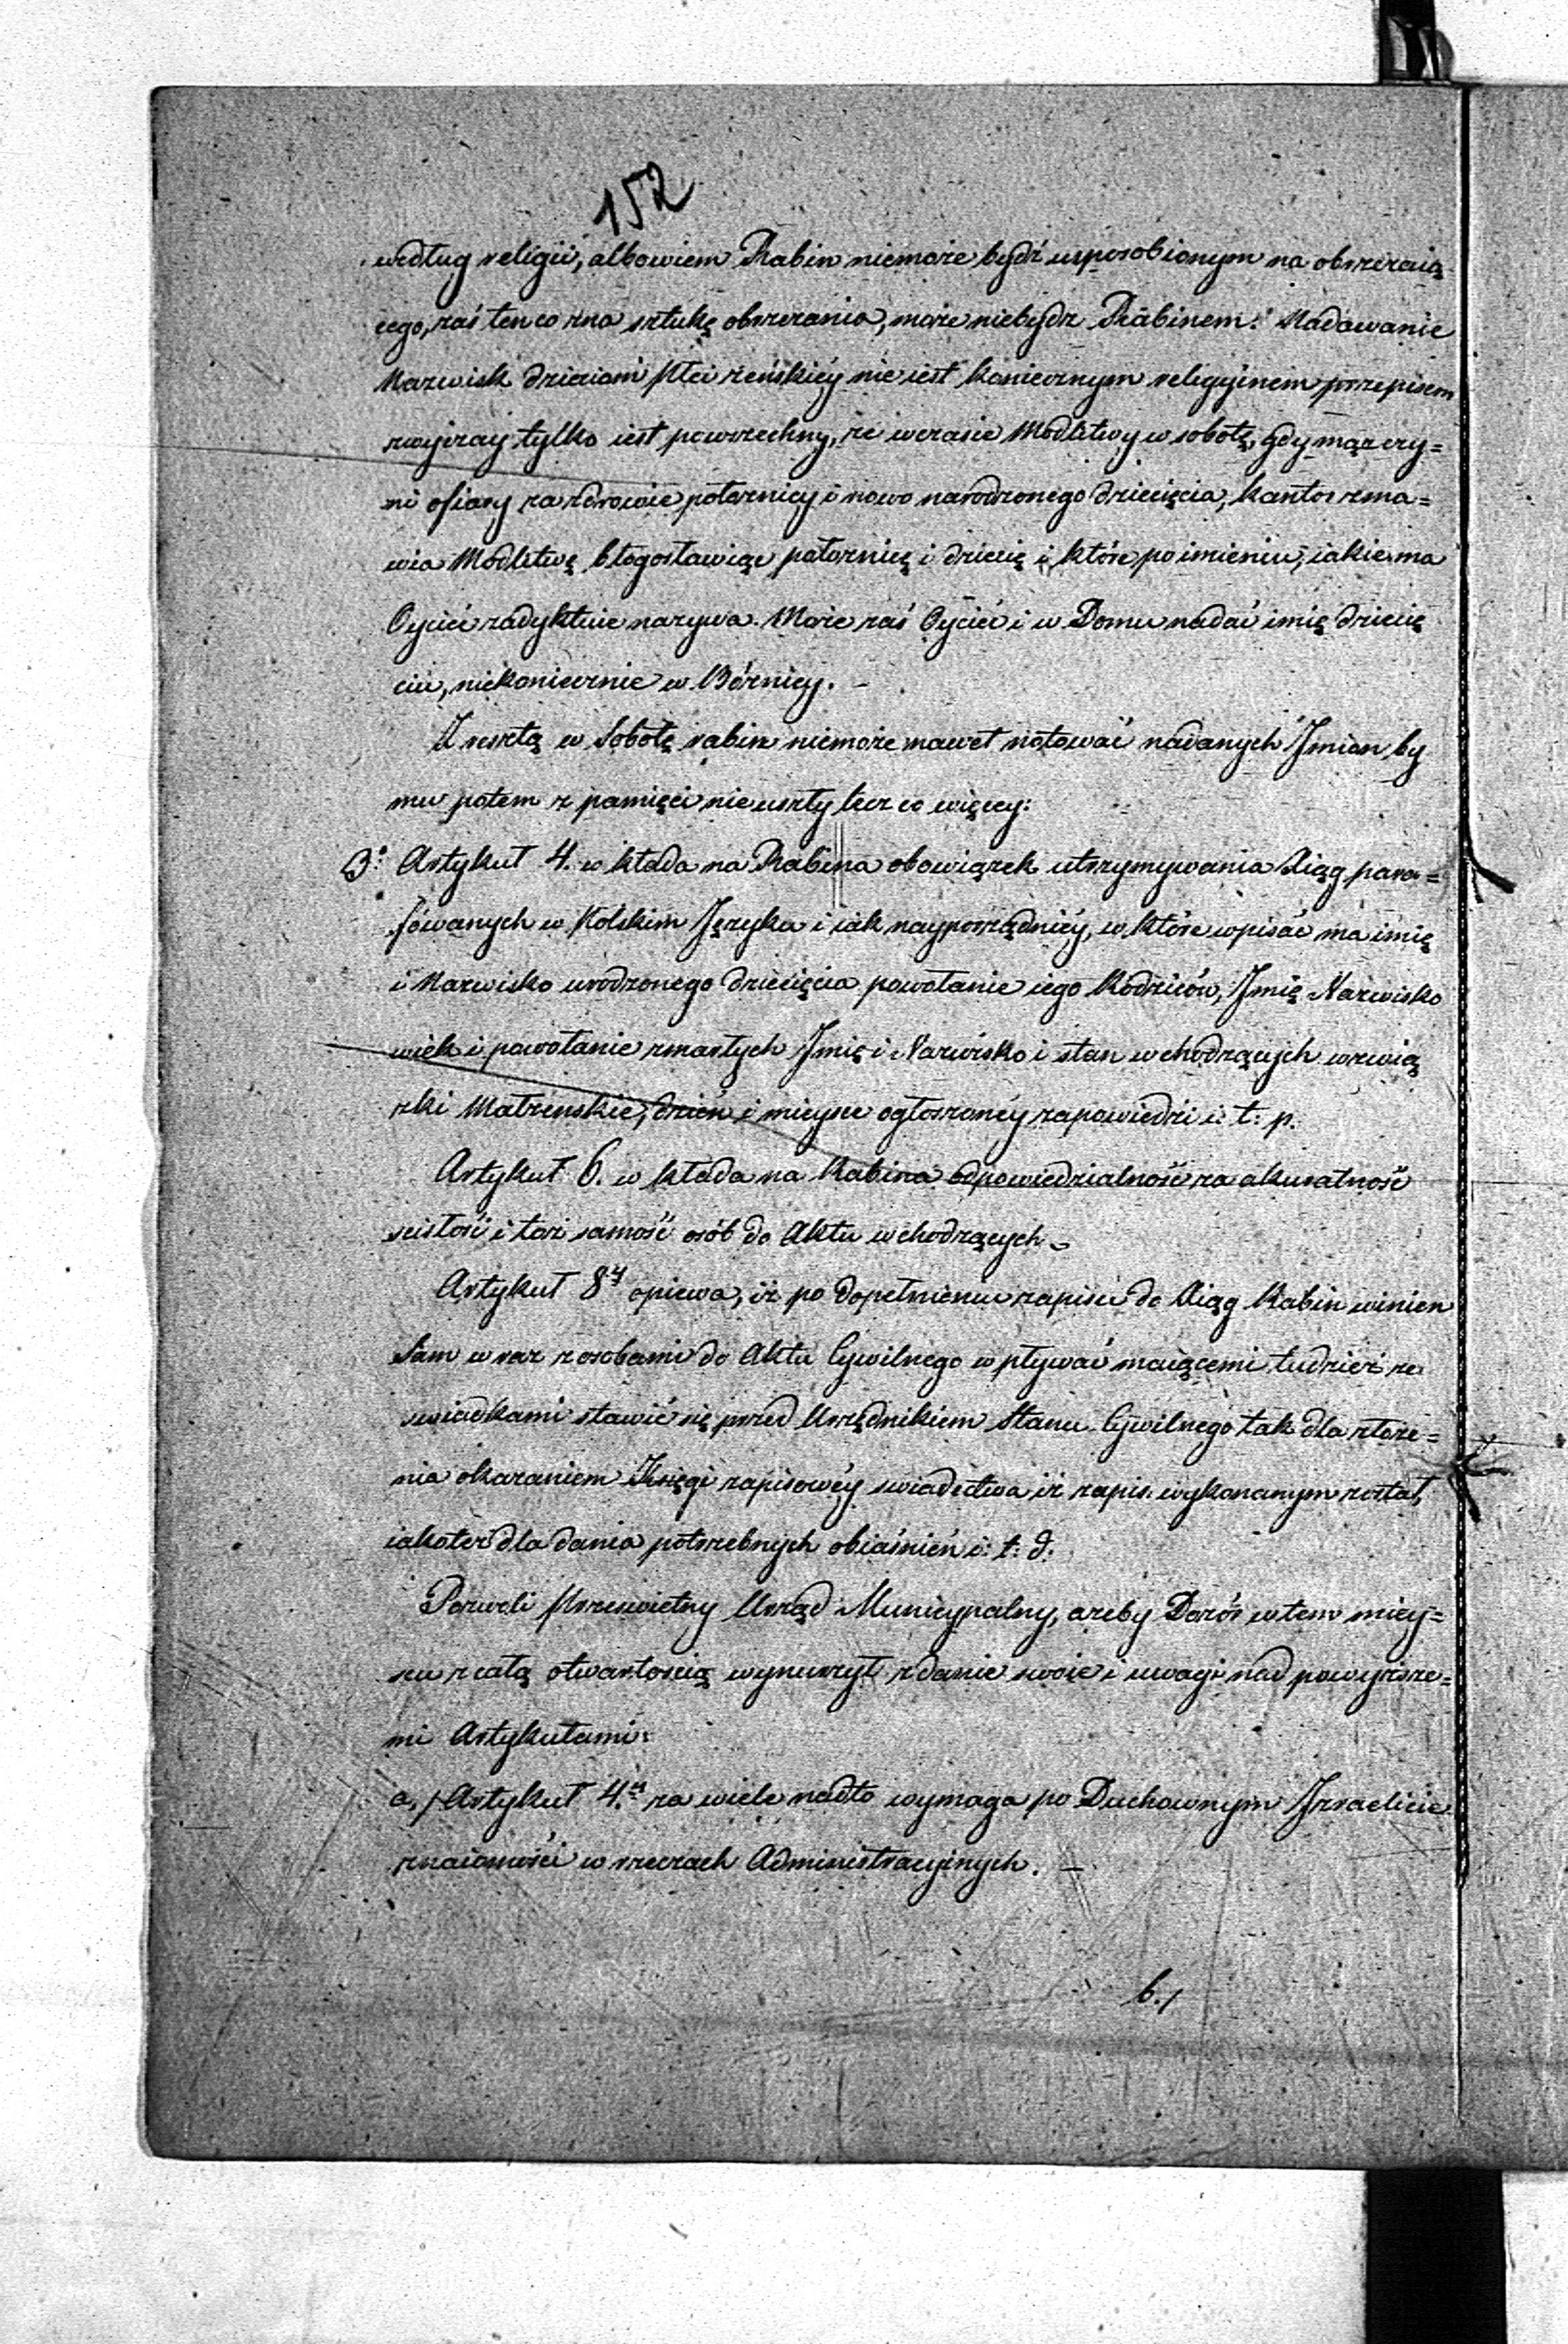 152
według religii, albowiem Rabin niemoże bydź usposobionym na obrzezaią
cego, zaś ten co zna sztukę obrzezania, może niebydz Rabinem. Nadawanie
Nazwisk dzieciom płci żeńskiéy nie iest koniecznym religyinem przepisem
zwyczay tylko iest powszechny, że w czasie Modlitwy w sobotę, gdy mąż czy=
ni ofiary za zdrowie połoznicy i nowo narodzonego dziecięcia, kantor zma=
wia Modlitwę błogosławiąc połoznicę i dziecię i które po imieniu, iakie ma
Oyciec zadyktuie nazywa. Może zaś Oyciec i w Domu nadać imię dziecię
ciu, niekoniecznie w Bóznicy. –
Zresztą w Sobotę rabin niemoże nawet notować nadanych Imion by
mu potem z pamięci nie uszły lecz co więcey:
3° Artykuł 4. wkłada na Rabina obowiązek utrzymywania Xiąg para=
fowanych w Polskim Języku i iak nayporządniéy, w które wpisać ma imię
i Nazwisko urodzonego dziecięcia powołanie iego Rodziców, Imię Nazwisko
wiek i powołanie zmarłych Imię i Nazwisko i stan wchodzących w zwią
zki Małzenskie, dzień i mieysce ogłoszonéy zapowiedzi i. t. p.
Artykuł 6. wkłada na Rabina odpowiedzialność za akuratność
scisłość i toż samość osób do Aktu wchodzących.
Artykuł 8y opiewa, iż po dopełnieniu zapisu do Xiąg Rabin winien
Sam wraz z osobami do Aktu Cywilnego wpływać maiącemi tudzież ze
swiadkami stawić się przed Urzędnikiem Stanu Cywilnego tak dla złoże=
nia okazaniem Xsięgi zapisowéy swiadectwa iż zapis wykonanym został,
iakoteż dla dania potrzebnych obiaśnień i: t: d.
Pozwoli Prześwietny Urząd Municypalny, azeby Dozór w tem miey=
scu z całą otwartością wynurzył zdanie swoie i uwagi nad powyższe=
mi Artykułami:
a,/ Artykuł 4.y za wiele nadto wymaga po Duchownym Izraelicie
znaiomości w rzeczach Administracyinych. –
b./